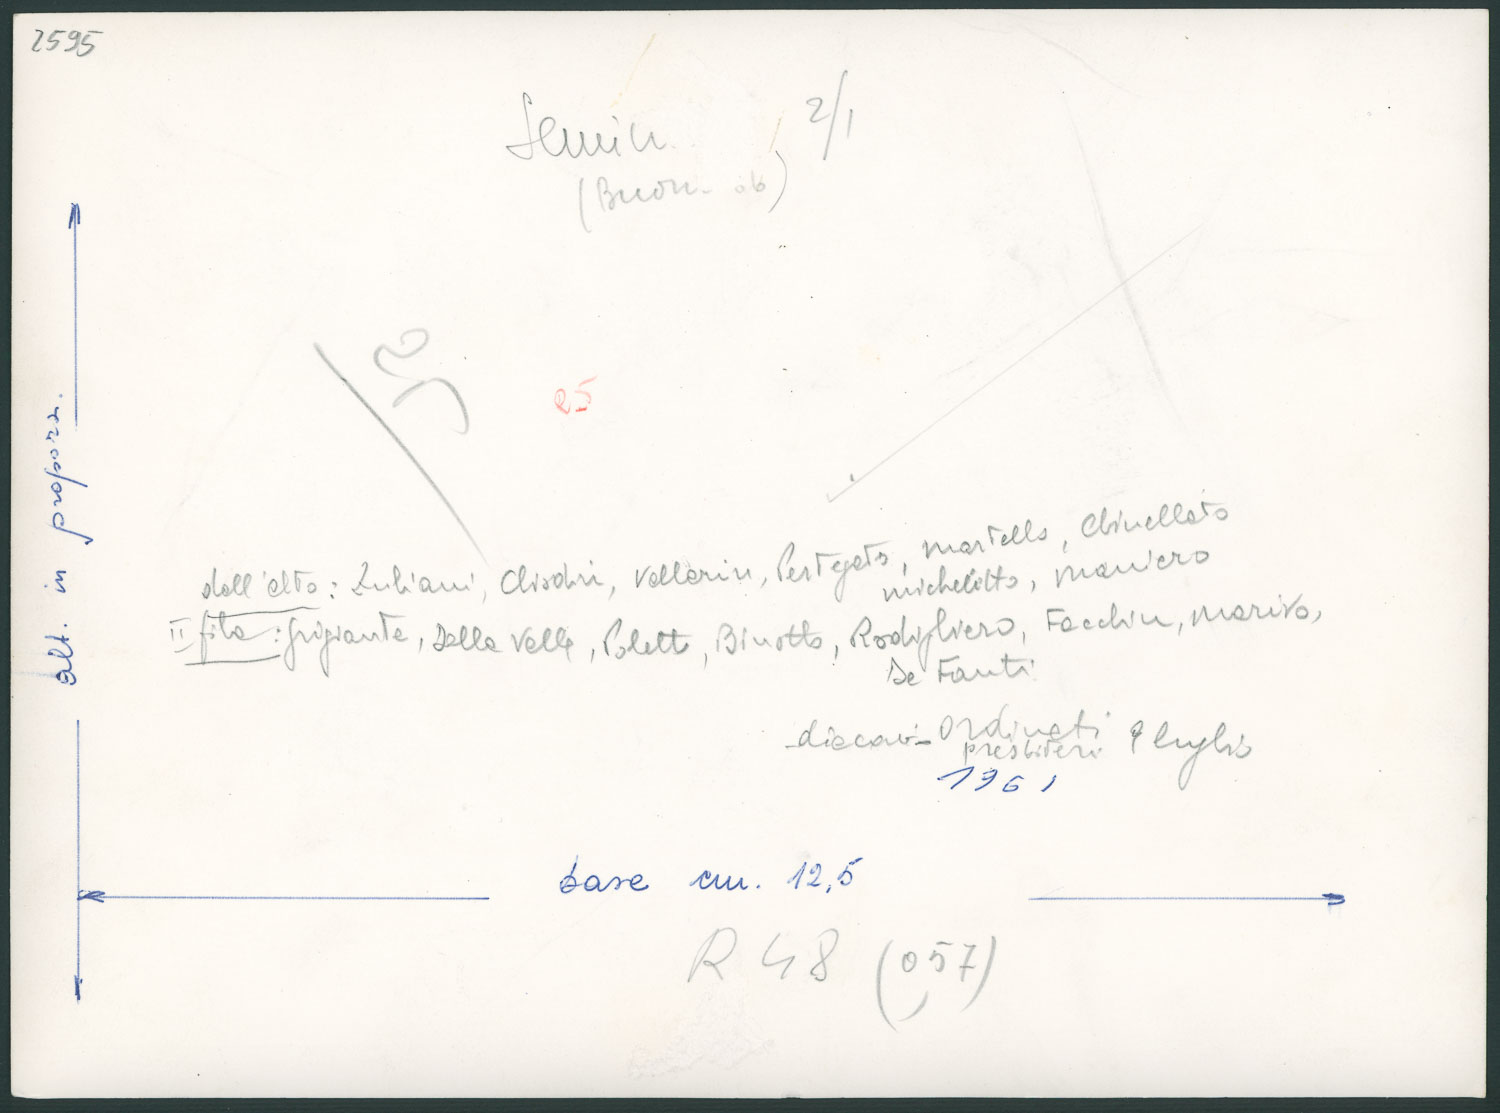 2595
2/1
(Buon
50
25
alt. in proporz.
dall'alto: Zuliani, Chiodin, Vallarin, Pertegato, Martello, Chinellato
Micheletto, Maniero
II fila: Grigiante, Dalla Valle, Poletto, Binotto, Rodighiero, Facchin,
De Fanti
diaconi - Ordinati
presbiteri 9 luglio
1961
base cm. 12,5
R 48 (057)